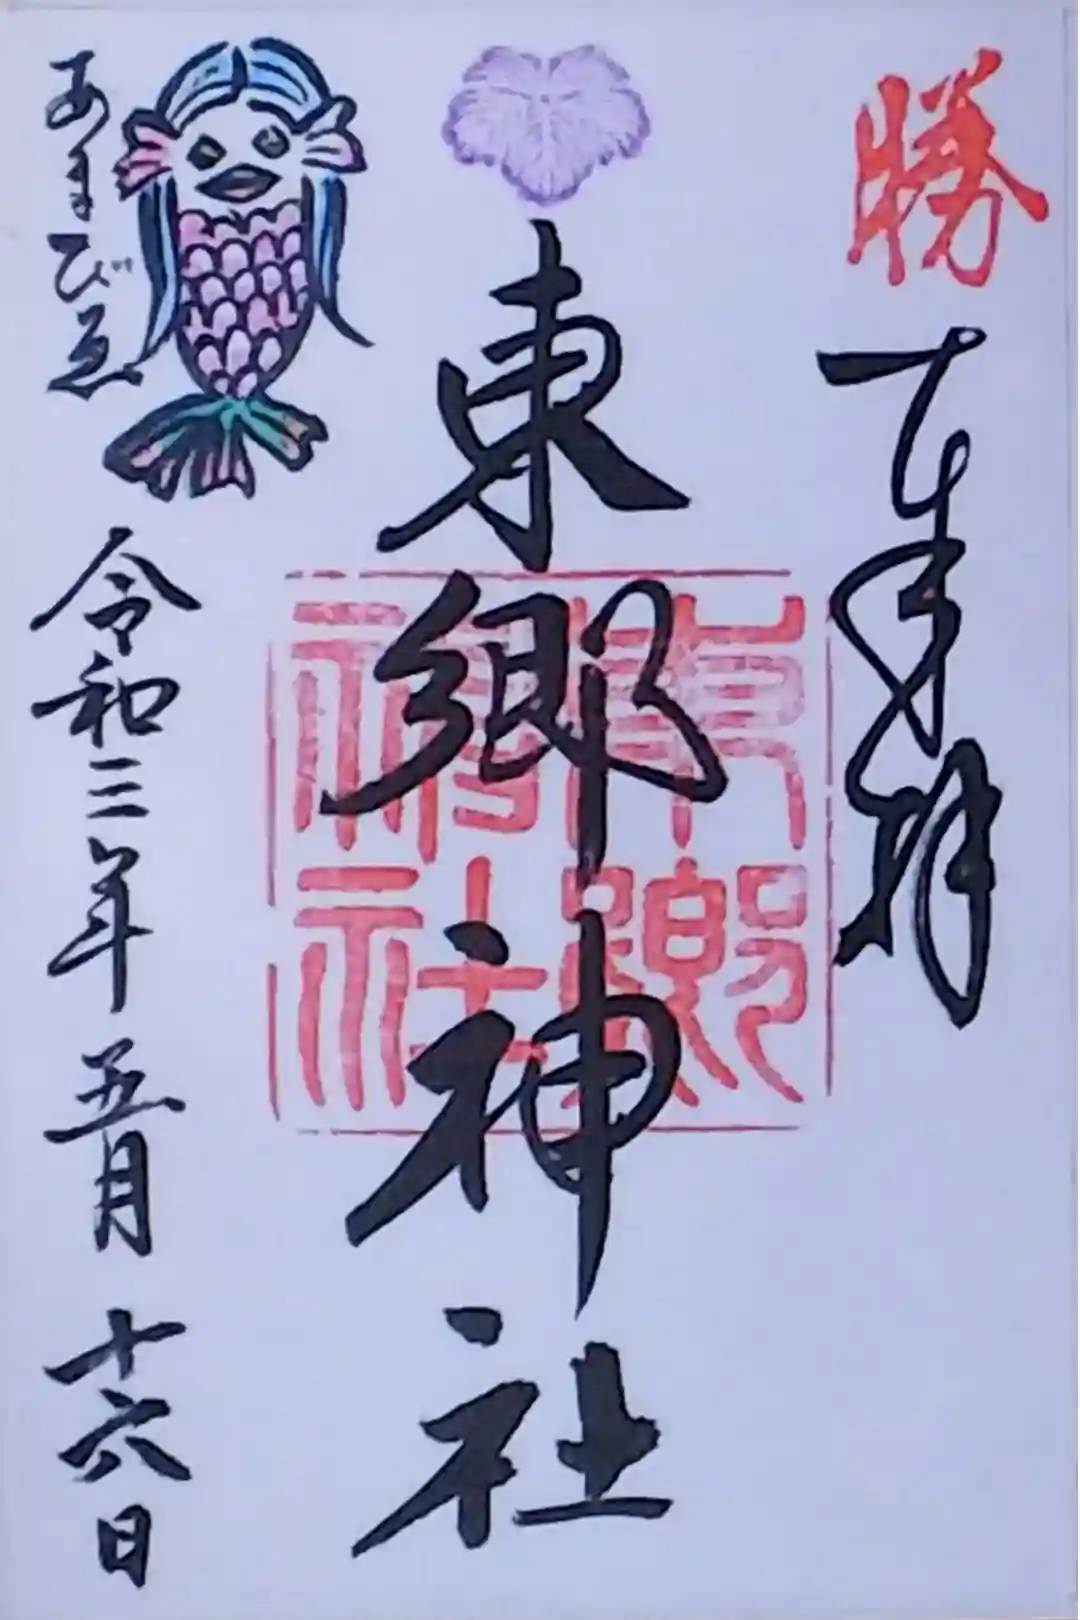 勝
奉拝
東郷神社
東郷神社
あまびゑ
令和三年五月十六日